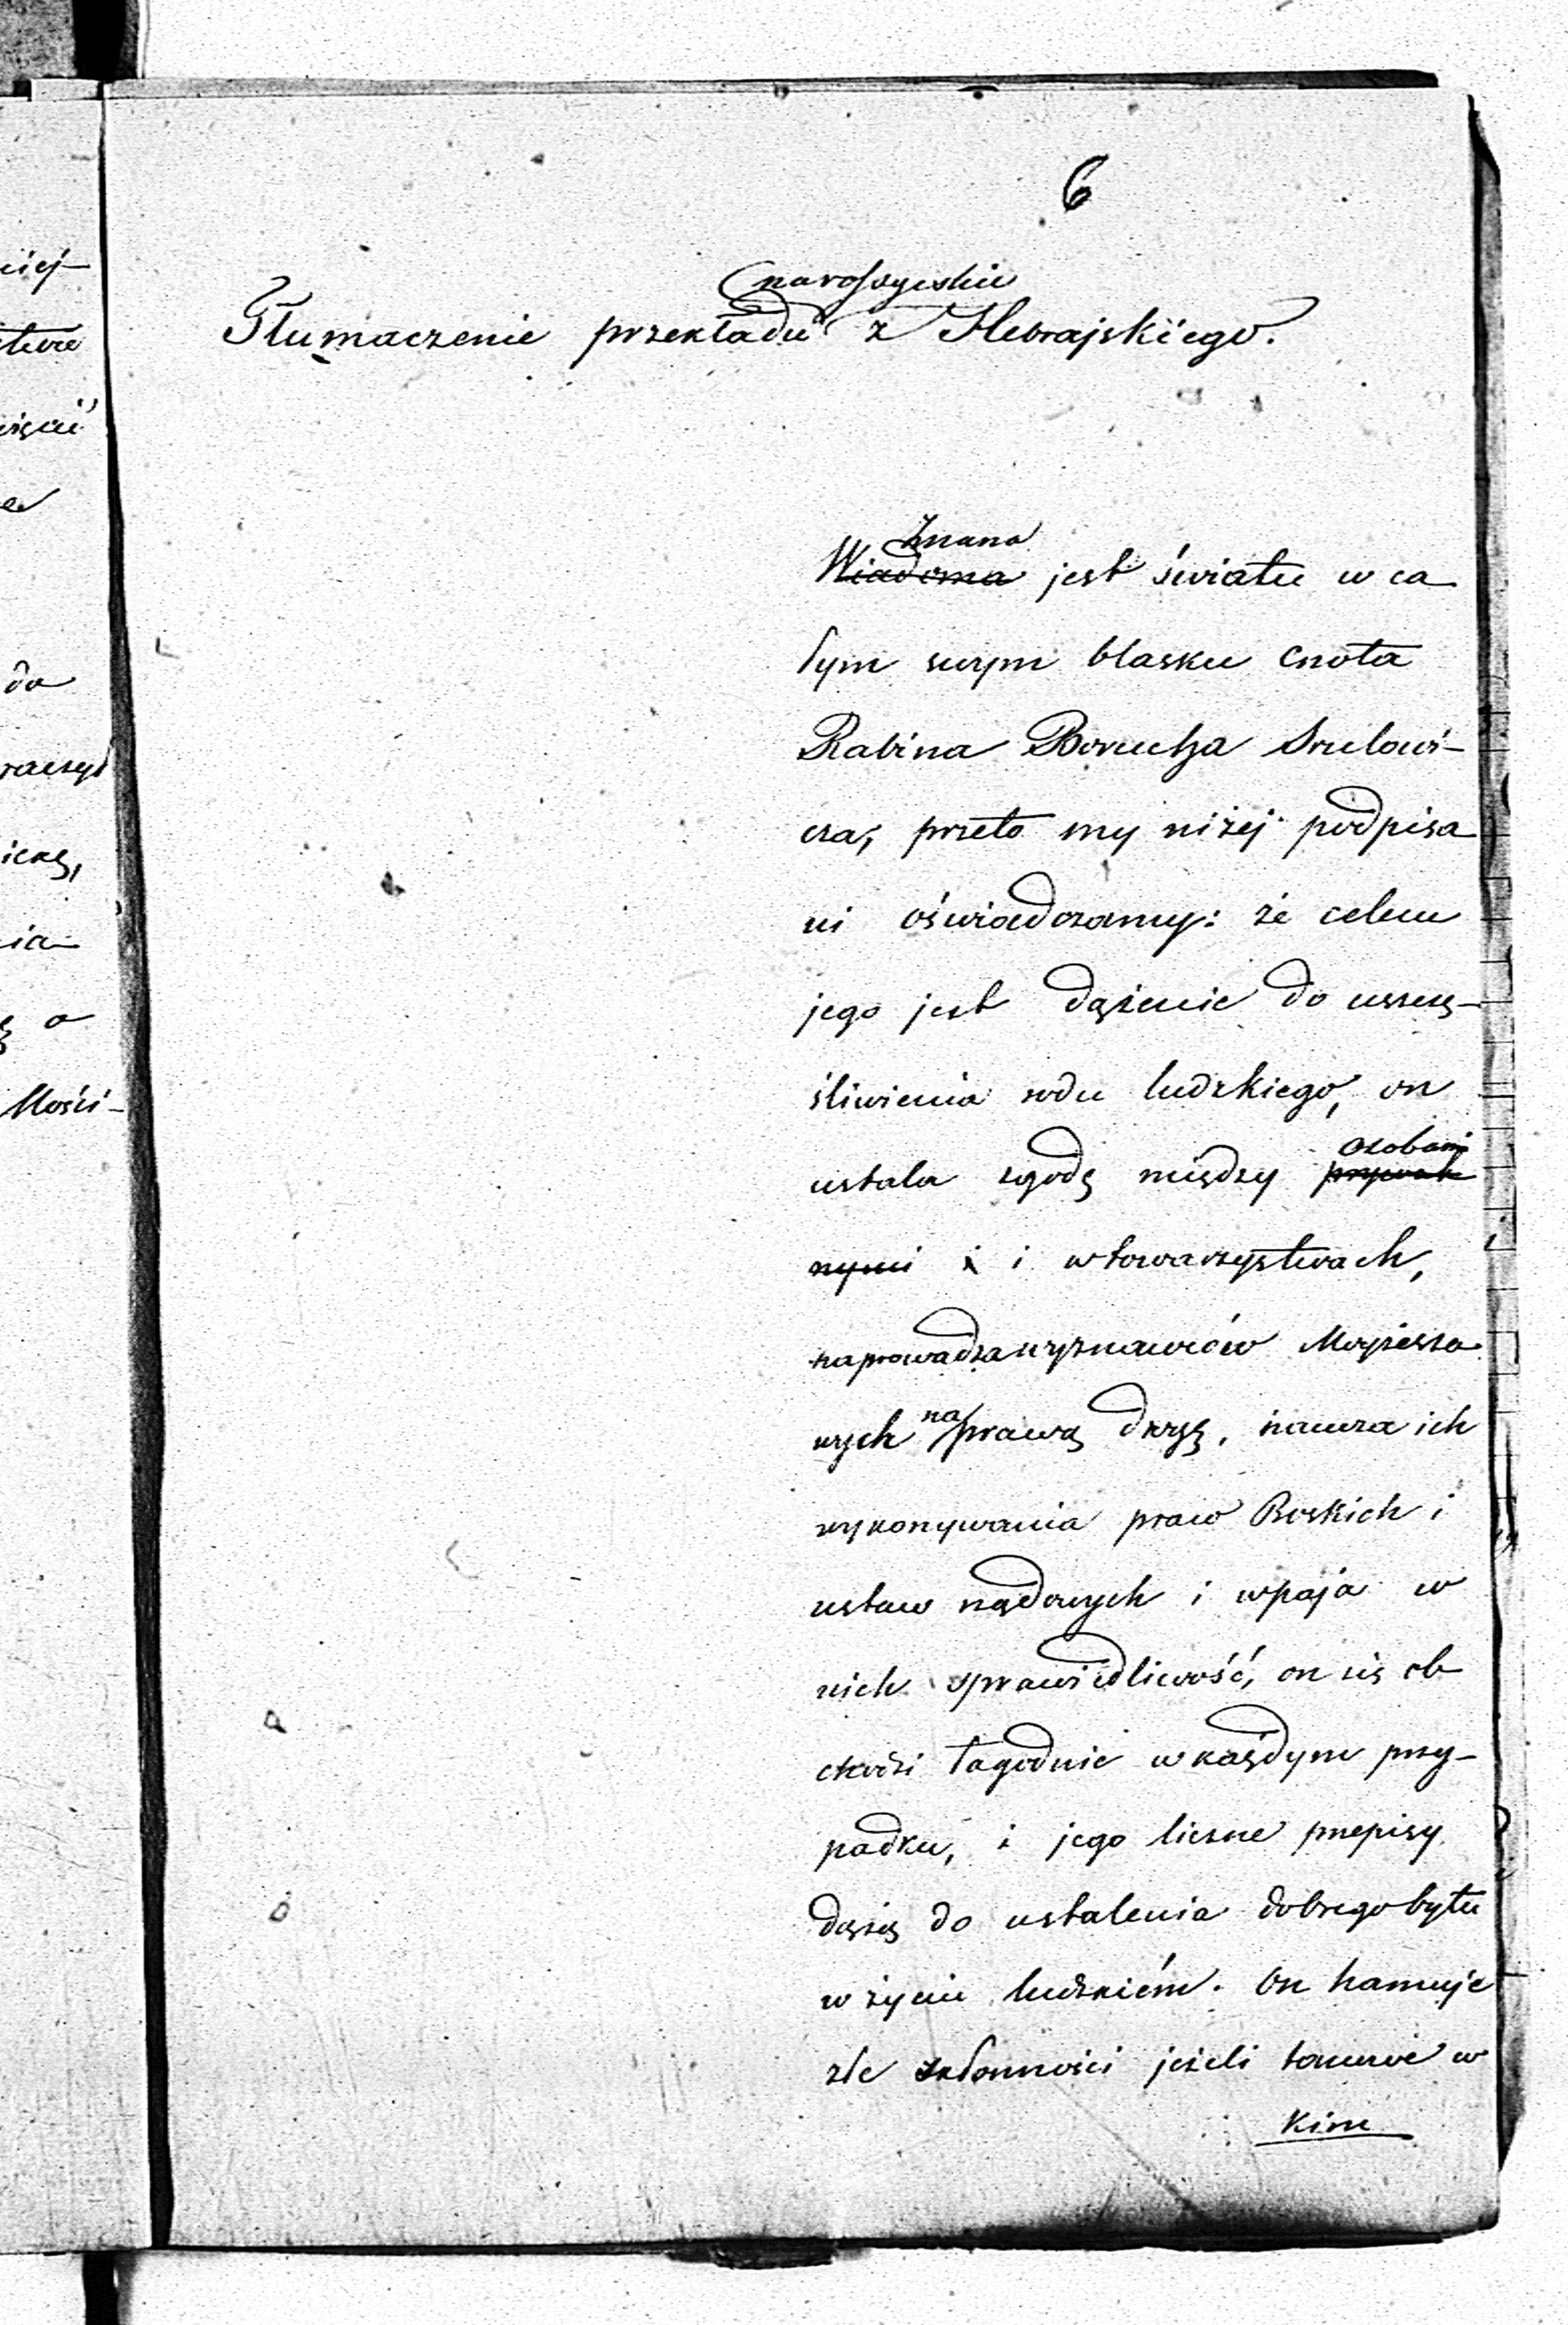 6
narossyiskie
Tłumaczenie przekładu z Hebrajskiego.
Znana
Wiadoma jest światu w ca
łym swym blasku cnota
Rabina Borucha Srulowi-
cza, przeto my niżej podpisa
ni oświadczamy: że celem
jego jest dążenie do uszczę-
śliwienia rodu ludzkiego, on
osobami
ustala zgodę między prywat
nymi i i w towarzystwach,
naprowadza wyznawców Mojżeszo
wych na prawą drogę, naucza ich
wykonywania praw Boskich i
ustaw rządowych i wpaja w
nich sprawiedliwość, on się ob
chodzi łagodnie w każdym przy-
padku, i jego liczne przepisy
dążą do ustalenia dobrego bytu
w życiu ludzkiém. On hamuje
złe skłonności jeżeli takowe w
kim
ciej-
do
ia-
a
Mości-